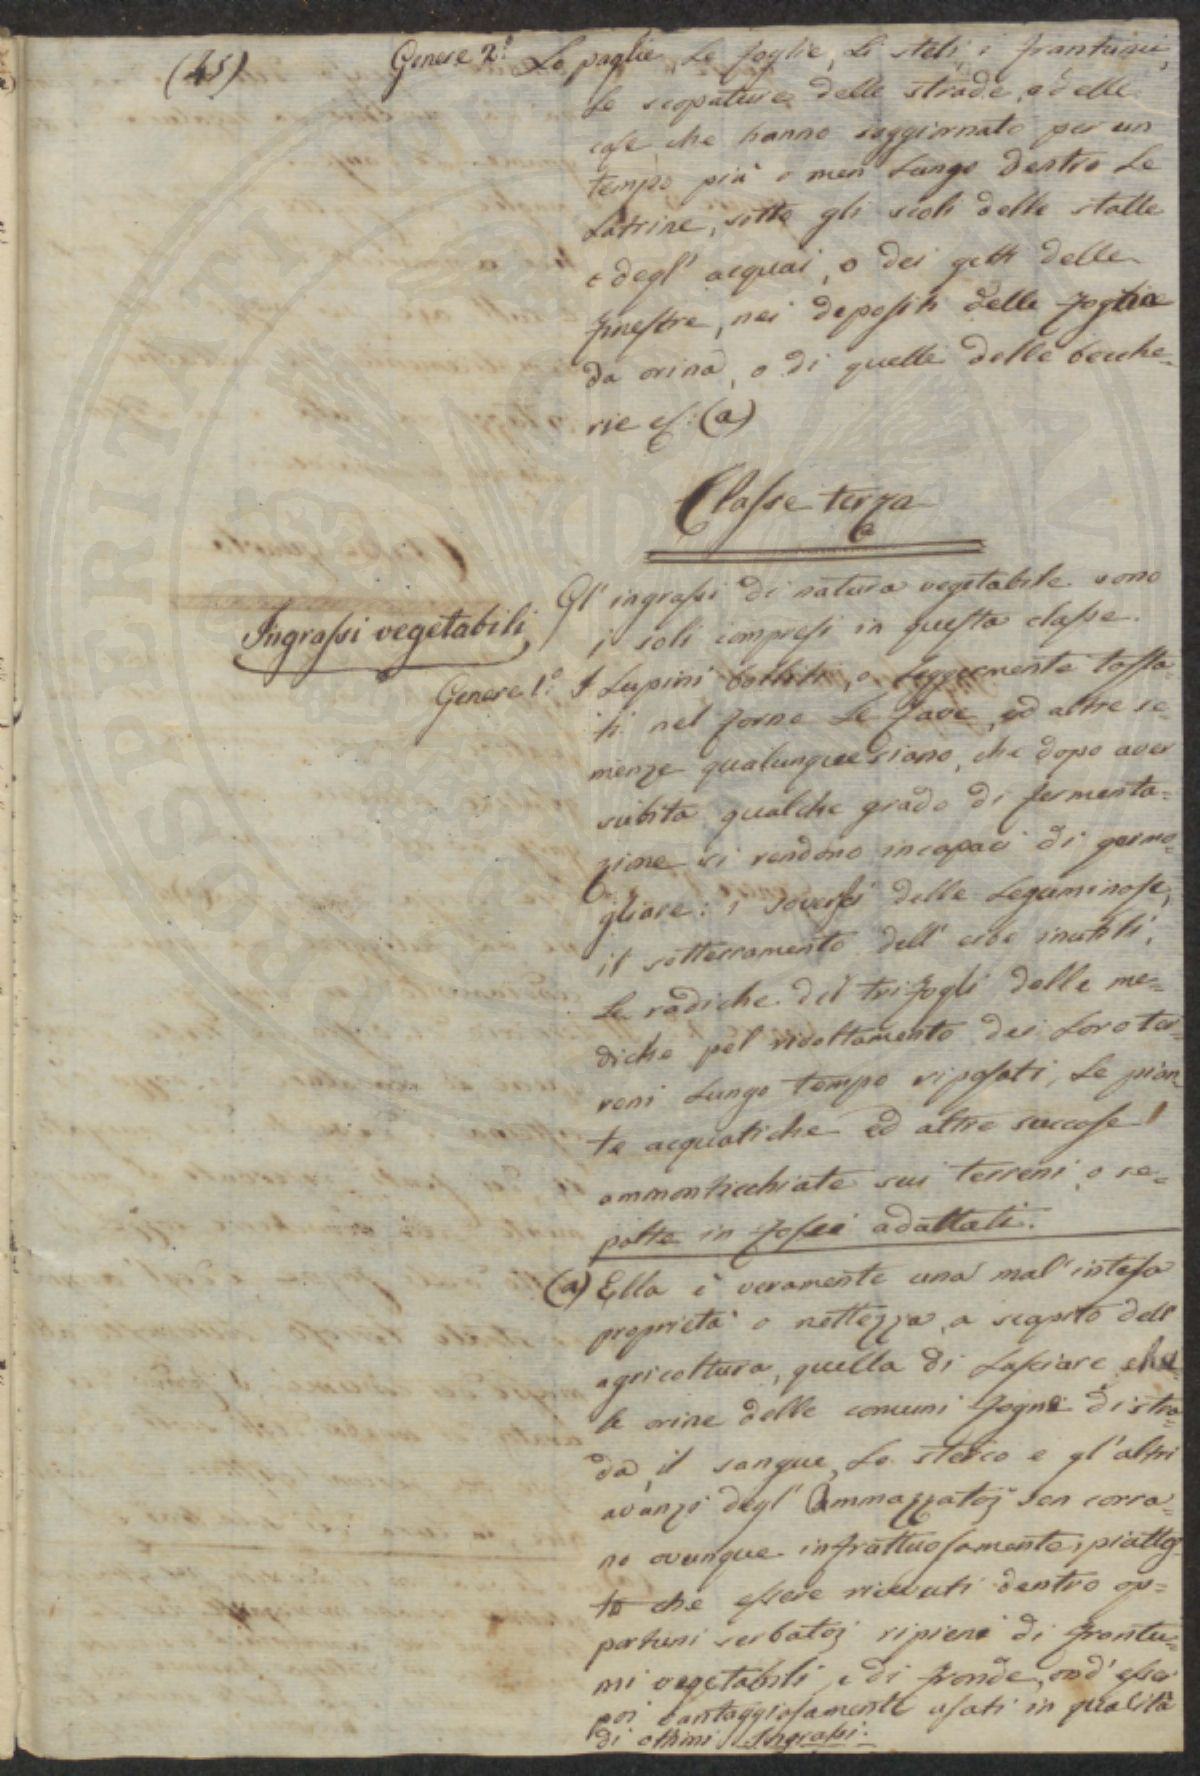 (45)
Genere 2.° Le paglie, Le foglie, Li steli, i frantumi,
Le scopature delle strade, e delle
case che hanno soggiornato per un
tempo più o men Lungo dentro Le
Latrine, sotto gli scoli delle stalle
e degl' acquai, o dei getti delle
finestre, nei depositi delle foglie
da orina, o di quelle delle becche-
rie &: (a)
Classe terza
Ingrassi vegetabili
Gl' ingrassi di natura vegetabile sono
i soli compresi in questa classe.
Genere 1.° I Lupini bolliti, o Leggermente tosta-
ti nel forno Le fave, ed altre se-
menze qualunque siano, che dopo aver
subita qualche grado di fermenta=
zione si rendono incapaci di germo-
gliare: i sovesci delle Leguminose,
il sotterramento dell' erbe inutili,
Le radiche del trifogli delle me=
diche pel rivoltamento dei Loro ter-
reni Lungo tempo riposati, Le pian
te acquatiche ed altre succose
ammonticchiate sui terreni, o se-
polte in fosse adattati.
(a) Ella è veramente una mal' intesa
proprietà o nettezza, a scapito dell'
agricoltura, quella di Lasciare che
le orine delle comuni fogne di stra=
da, il sangue, Lo sterco e gl' altri
avanzi degl' Ammazzatoj sen corra=
no ovunque infruttuosamente, piuttos-
to che essere ricevuti dentro op=
portuni serbatoj ripieni di frantu=
mi vegetabili, e di fronde, ond' esser
poi vantaggiosamente usati in qualità
di ottimi Ingrassi.
SPERITATI